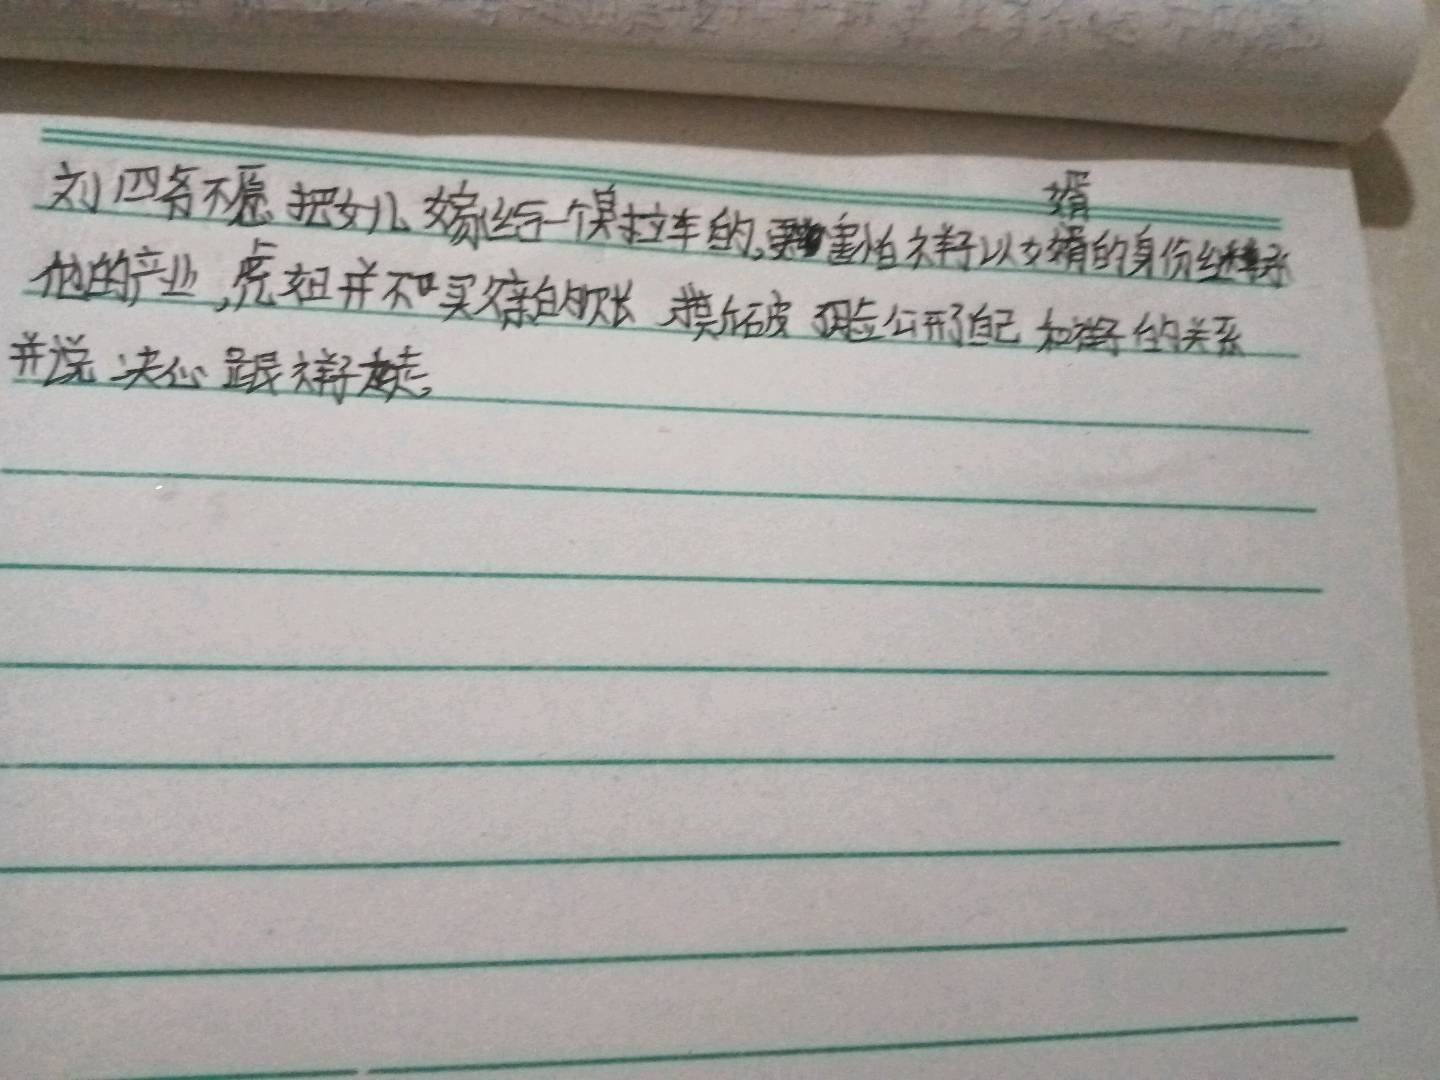 婿
刘四爷不愿把女儿嫁给一个臭拉车的,害怕祥子以女婿的身份继承
他的产业,虎妞并不买父亲的账 破脸公开了自己和祥子的关系
并说决心跟祥子走。